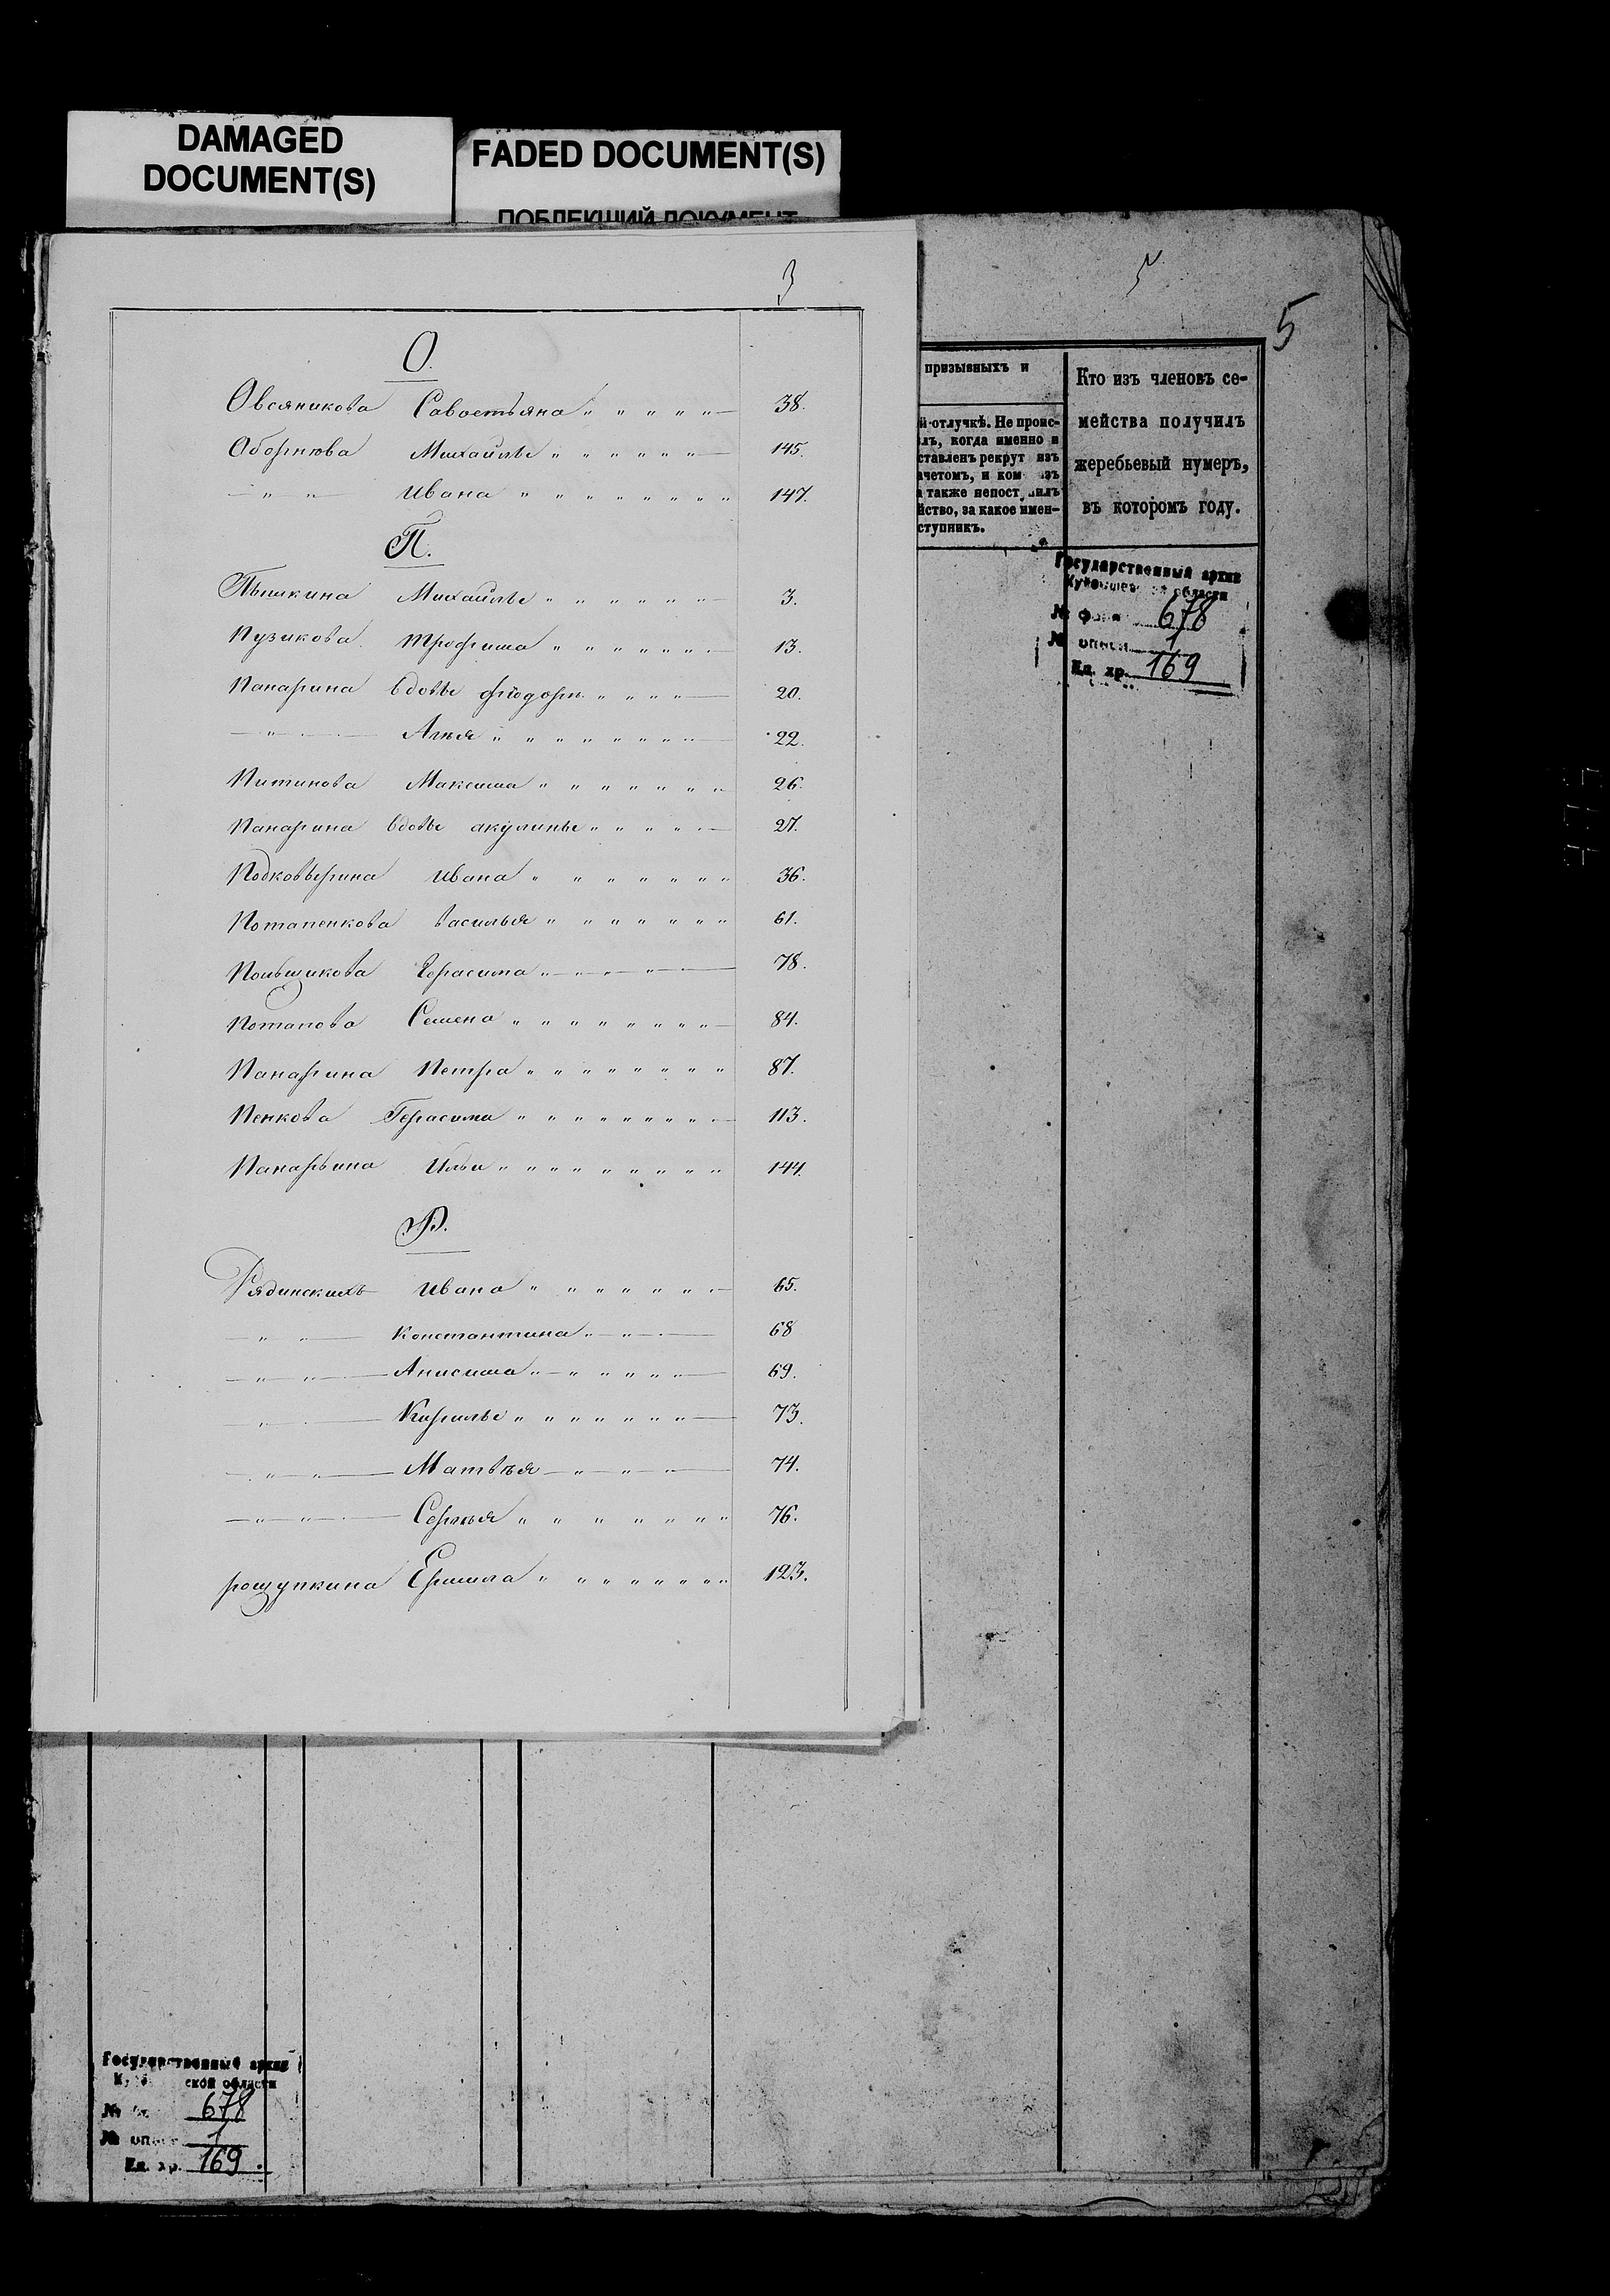 DAMAGED
DOCUMENT(S)
FADED DOCUMENT(S)
ПОБЛЕКШИЙ ДОКУМЕНТ
3
О.
Овсяникова Савостьяна " " " " " 38.
Оборнова Михайлы " " " " " " 145.
" " Ивана " " " " " " " " 147.
П.
Пѣшкина Михайлы " " " " " " 3.
Пузикова Трофима " " " " " " 13.
Панарина вдовы " " " " 20.
" 22.
Питинова Максима " " " " " " " 26.
Панарина вдовы акулины " " " " 27.
Подковырина Ивана " " " " " " " 36.
Потапенкова Василья " " " " " " 61.
Герасима " " " " 78.
Потапова Семена " " " " " " " " 84.
Панарина Петра " " " " " " " " 87.
Пенкова Герасима " " " " " " " " 113.
Панарьина Ильи " " " " " " " " " 144.
Р.
Рядинскихъ Ивана " " " " " " " 65.
" " Константина " " 68
" " Анисима " " " " " " 69.
" Кирилы " " " " " " " 73.
" " Матвѣя " " " 74.
" " Сергѣя " " " " " " " " 76.
рощупкина Ермила " " " " " " " 123.
5
5
призывныхъ и
й отлучкѣ. Не проис-
лъ, когда именно и
ставленъ рекрут изъ
ачетомъ, и ком зъ
а также непост илъ
йство, за какое имен-
ступникъ.
Кто изъ членовъ се-
мейства получилъ
жеребьевый нумеръ,
въ которомъ году.
Государственный архив
области
№ фонда 678
№ описи 1
Ед. хр. 169
Государственный архив
ской области
№ 678
№ описи 1
Ед. хр. 169.